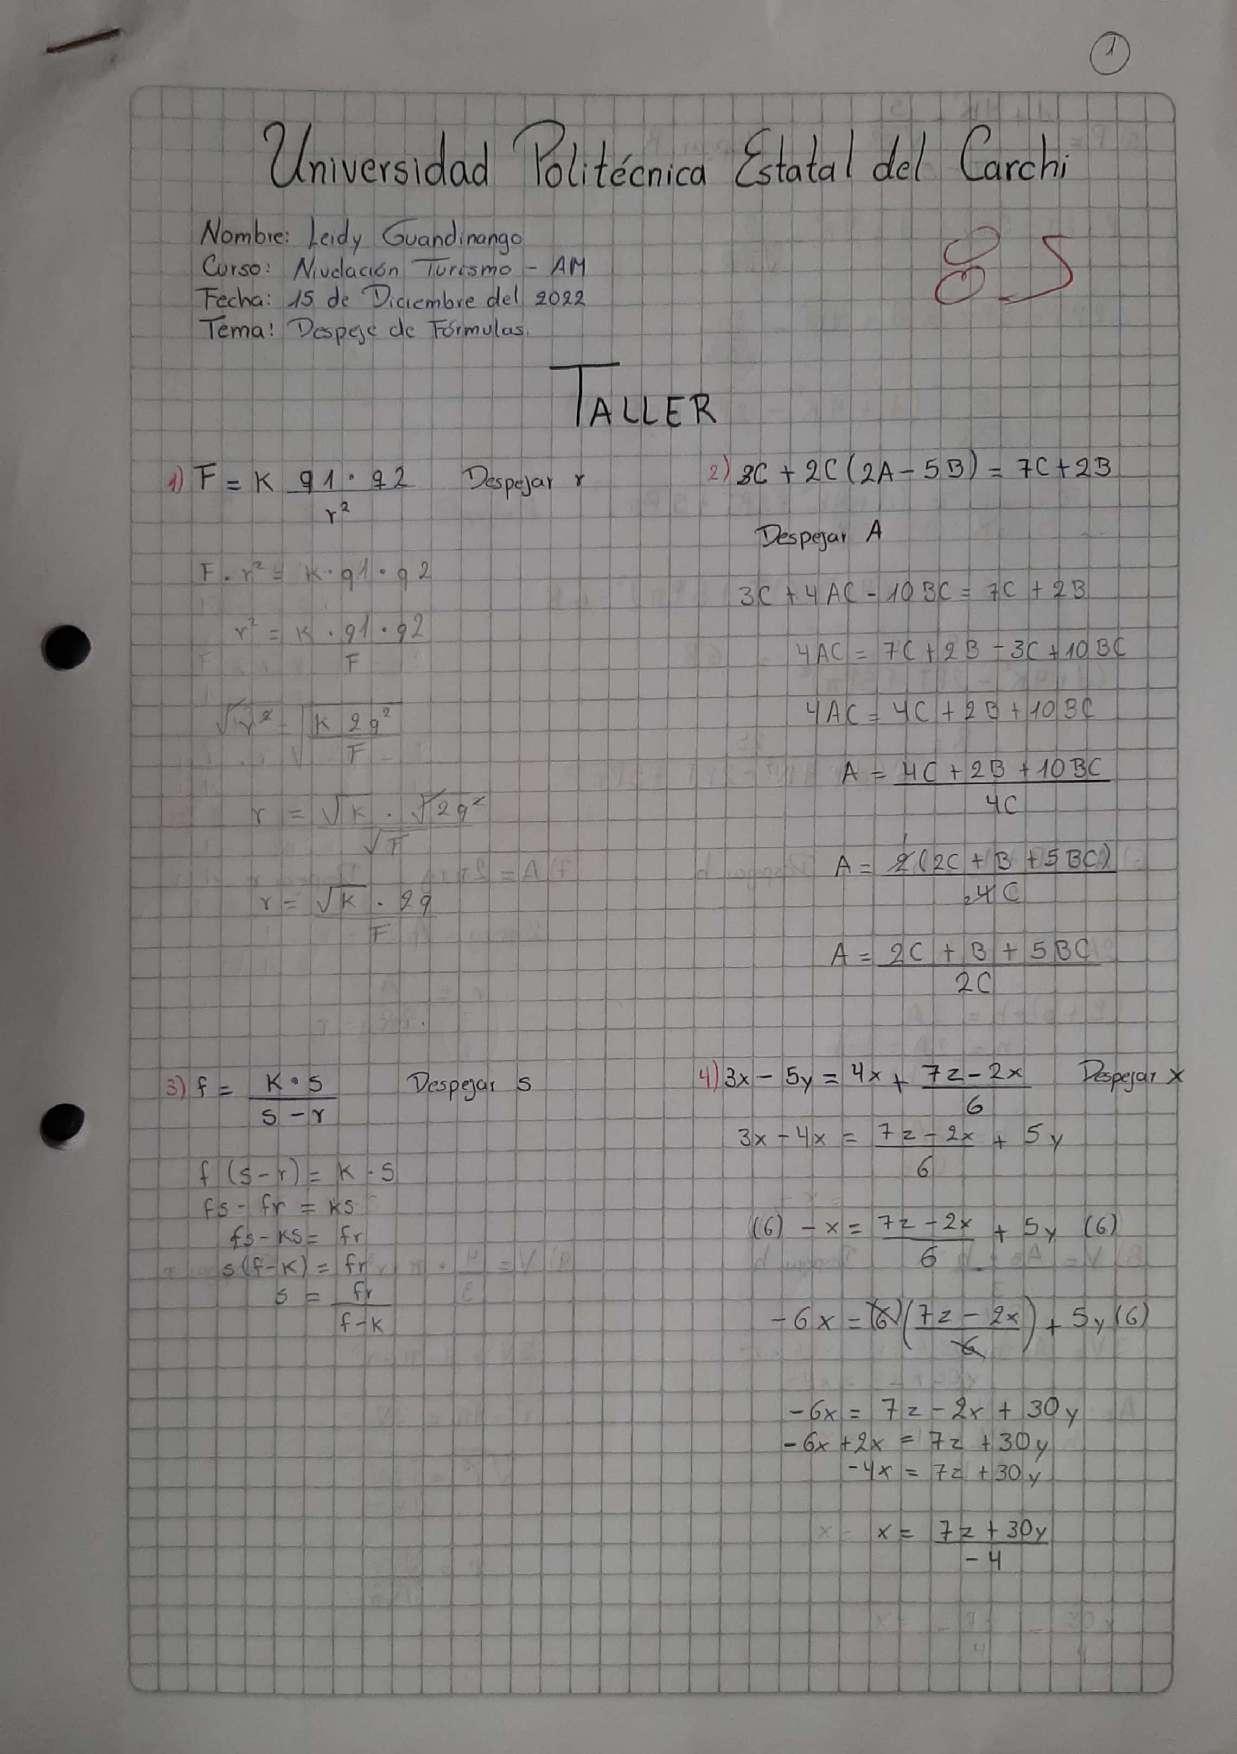 1
Universidad Politécnica Estatal del Carchi
Nombre: Leidy Guandinango
Curso: Nivelación Turismo - AM
Fecha: 15 de Diciembre del 2022
Tema: Despeje de Fórmulas.
85
TALLER
1) F = K q1 · q2 / r² Despejar r
F · r² = K · q1 · q2
r² = K · q1 · q2 / F
√r² = √(K 2q² / F)
r = √K · √2q² / √F
r = √K · 2q / F
2) 3C + 2C (2A - 5B) = 7C + 2B
Despejar A
3C + 4AC - 10BC = 7C + 2B
4AC = 7C + 2B - 3C + 10BC
4AC = 4C + 2B + 10BC
A = 4C + 2B + 10BC / 4C
A = 2(2C + B + 5BC) / 4C
A = 2C + B + 5BC / 2C
3) f = K · s / s - r Despejar s
f (s - r) = K · s
fs - fr = Ks
fs - Ks = fr
s(f - K) = fr
s = fr / f - K
4) 3x - 5y = 4x + 7z - 2x / 6 Despejar x
3x - 4x = 7z - 2x / 6 + 5y
(6) - x = 7z - 2x / 6 + 5y (6)
- 6x = (6) (7z - 2x / 6) + 5y (6)
- 6x = 7z - 2x + 30y
- 6x + 2x = 7z + 30y
- 4x = 7z + 30y
x = 7z + 30y / - 4